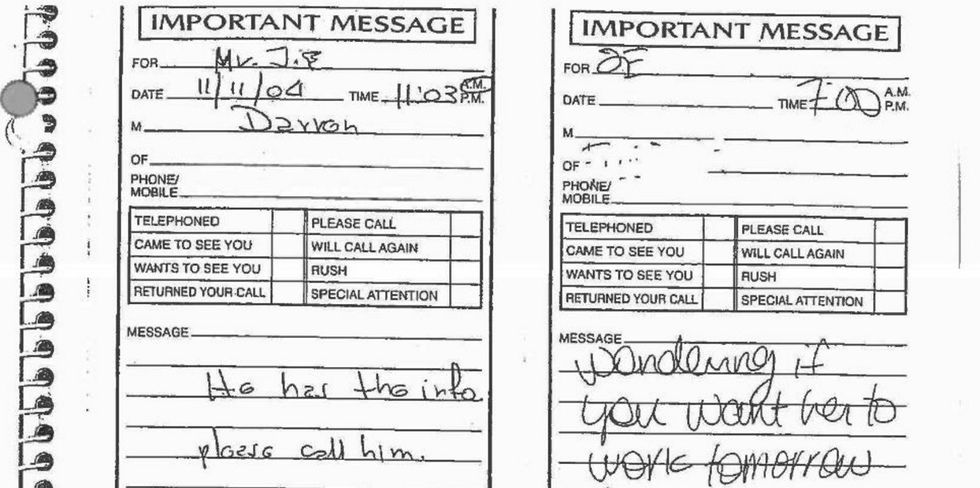 IMPORTANT MESSAGE
FOR Mr. J.E
DATE 11/11/04 TIME 11:03 A.M.
P.M.
M Darren
OF
PHONE/
MOBILE
TELEPHONED PLEASE CALL
CAME TO SEE YOU WILL CALL AGAIN
WANTS TO SEE YOU RUSH
RETURNED YOUR CALL SPECIAL ATTENTION
MESSAGE
He has the info
please call him.
IMPORTANT MESSAGE
FOR JE
DATE TIME 7:00 A.M.
P.M.
M
OF
PHONE/
MOBILE
TELEPHONED PLEASE CALL
CAME TO SEE YOU WILL CALL AGAIN
WANTS TO SEE YOU RUSH
RETURNED YOUR CALL SPECIAL ATTENTION
MESSAGE
wondering if
you want her to
work tomorrow